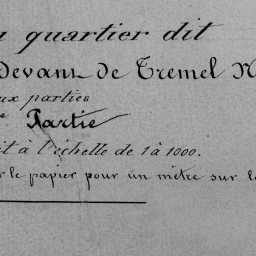 quartier dit
Devant de Tremel N
ux parties
e Partie
it à l'échelle de 1 à 1000.
r le papier pour un mètre sur le